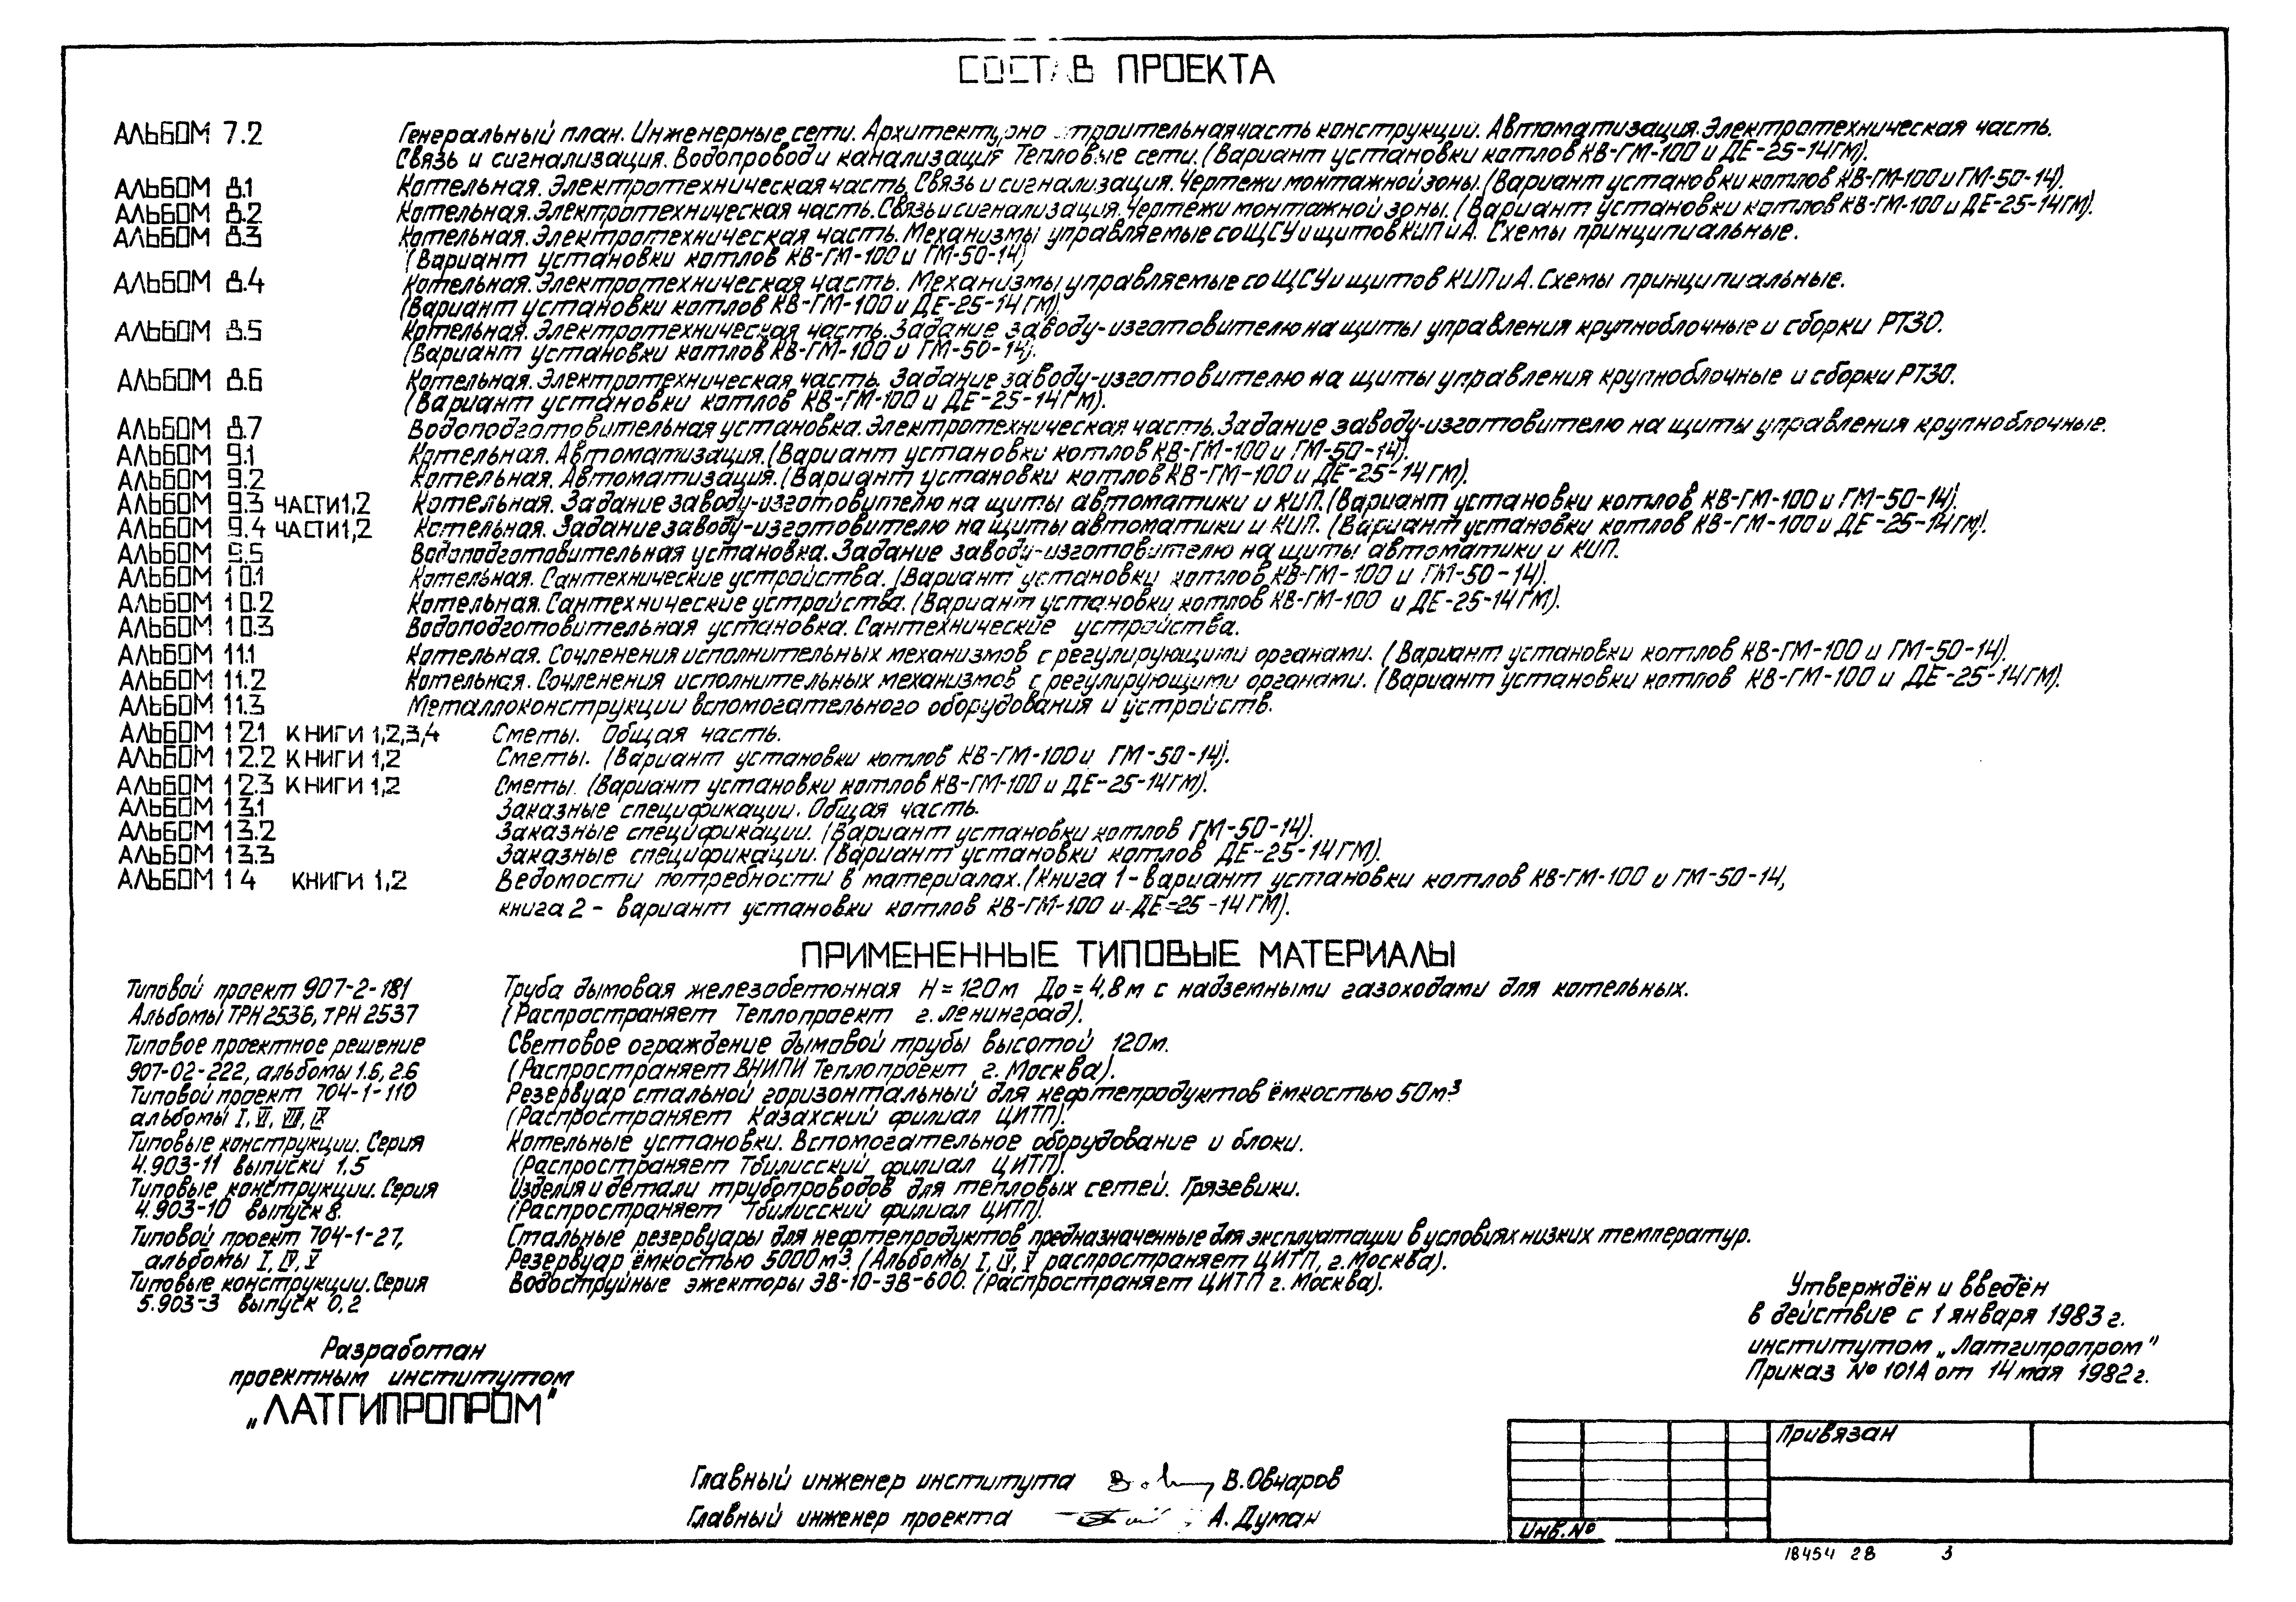 СОСТАВ ПРОЕКТА
АЛЬБОМ 7.2 Генеральный план. Инженерные сети. Архитектурно строительная часть конструкции. Автоматизация. Электротехническая часть.
Связь и сигнализация. Водопровод и канализация Тепловые сети. (Вариант установки котлов КВ-ГМ-100 и ДЕ-25-14ГМ).
АЛЬБОМ 8.1 Котельная. Электротехническая часть. Связь и сигнализация. Чертежи монтажной зоны. (Вариант установки котлов КВ-ГМ-100 и ГМ-50-14).
АЛЬБОМ 8.2 Котельная. Электротехническая часть. Связь и сигнализация. Чертежи монтажной зоны. (Вариант установки котлов КВ-ГМ-100 и ДЕ-25-14ГМ).
АЛЬБОМ 8.3 Котельная. Электротехническая часть. Механизмы управляемые со ЩСУ и щитов КИПиА. Схемы принципиальные.
(Вариант установки котлов КВ-ГМ-100 и ГМ-50-14)
АЛЬБОМ 8.4 Котельная. Электротехническая часть. Механизмы управляемые со ЩСУ и щитов КИПиА. Схемы принципиальные.
(Вариант установки котлов КВ-ГМ-100 и ДЕ-25-14ГМ).
АЛЬБОМ 8.5 Котельная. Электротехническая часть. Задание заводу-изготовителю на щиты управления крупноблочные и сборки РТЗО.
(Вариант установки котлов КВ-ГМ-100 и ГМ-50-14).
АЛЬБОМ 8.6 Котельная. Электротехническая часть. Задание заводу-изготовителю на щиты управления крупноблочные и сборки РТЗО.
(Вариант установки котлов КВ-ГМ-100 и ДЕ-25-14ГМ).
АЛЬБОМ 8.7 Водоподготовительная установка. Электротехническая часть. Задание заводу-изготовителю на щиты управления крупноблочные.
АЛЬБОМ 9.1 Котельная. Автоматизация. (Вариант установки котлов КВ-ГМ-100 и ГМ-50-14).
АЛЬБОМ 9.2 Котельная. Автоматизация. (Вариант установки котлов КВ-ГМ-100 и ДЕ-25-14ГМ).
АЛЬБОМ 9.3 ЧАСТИ 1,2 Котельная. Задание заводу-изготовителю на щиты автоматики и КИП. (Вариант установки котлов КВ-ГМ-100 и ГМ-50-14).
АЛЬБОМ 9.4 ЧАСТИ 1,2 Котельная. Задание заводу-изготовителю на щиты автоматики и КИП. (Вариант установки котлов КВ-ГМ-100 и ДЕ-25-14ГМ).
АЛЬБОМ 9.5 Водоподготовительная установка. Задание заводу-изготовителю на щиты автоматики и КИП.
АЛЬБОМ 10.1 Котельная. Сантехнические устройства. (Вариант установки котлов КВ-ГМ-100 и ГМ-50-14).
АЛЬБОМ 10.2 Котельная. Сантехнические устройства. (Вариант установки котлов КВ-ГМ-100 и ДЕ-25-14ГМ).
АЛЬБОМ 10.3 Водоподготовительная установка. Сантехнические устройства.
АЛЬБОМ 11.1 Котельная. Сочленения исполнительных механизмов с регулирующими органами. (Вариант установки котлов КВ-ГМ-100 и ГМ-50-14).
АЛЬБОМ 11.2 Котельная. Сочленения исполнительных механизмов с регулирующими органами. (Вариант установки котлов КВ-ГМ-100 и ДЕ-25-14ГМ).
АЛЬБОМ 11.3 Металлоконструкции вспомогательного оборудования и устройств.
АЛЬБОМ 12.1 КНИГИ 1,2,3,4 Сметы. Общая часть.
АЛЬБОМ 12.2 КНИГИ 1,2 Сметы. (Вариант установки котлов КВ-ГМ-100 и ГМ-50-14).
АЛЬБОМ 12.3 КНИГИ 1,2 Сметы. (Вариант установки котлов КВ-ГМ-100 и ДЕ-25-14ГМ).
АЛЬБОМ 13.1 Заказные спецификации. Общая часть.
АЛЬБОМ 13.2 Заказные спецификации. (Вариант установки котлов ГМ-50-14).
АЛЬБОМ 13.3 Заказные спецификации. (Вариант установки котлов ДЕ-25-14ГМ).
АЛЬБОМ 14 КНИГИ 1,2 Ведомости потребности в материалах. (Книга 1-вариант установки котлов КВ-ГМ-100 и ГМ-50-14,
книга 2 - вариант установки котлов КВ-ГМ-100 и ДЕ-25-14ГМ).
ПРИМЕНЕННЫЕ ТИПОВЫЕ МАТЕРИАЛЫ
Типовой проект 907-2-181 Труба дымовая железобетонная Н=120м До=4,8м с надземными газоходами для котельных.
Альбомы ТРН2536, ТРН2537 (Распространяет Теплопроект г. Ленинград).
Типовое проектное решение Световое ограждение дымовой трубы высотой 120м.
907-02-222, альбомы 1.6, 2.6 (Распространяет ВНИПИ Теплопроект г. Москва).
Типовой проект 704-1-110 Резервуар стальной горизонтальный для нефтепродуктов ёмкостью 50м³
альбомы I, VI, VIII, IX (Распространяет Казахский филиал ЦИТП).
Типовые конструкции. Серия Котельные установки. Вспомогательное оборудование и блоки.
4.903-11 выпуски 1.5 (Распространяет Тбилисский филиал ЦИТП).
Типовые конструкции. Серия Изделия и детали трубопроводов для тепловых сетей. Грязевики.
4.903-10 выпуск 8. (Распространяет Тбилисский филиал ЦИТП).
Типовой проект 704-1-27, Стальные резервуары для нефтепродуктов предназначенные для эксплуатации в условиях низких температур.
альбомы I, IV, V Резервуар ёмкостью 5000м³. (Альбомы I, IV, V распространяет ЦИТП, г. Москва).
Типовые конструкции. Серия Водоструйные эжекторы ЭВ-10-ЭВ-600. (Распространяет ЦИТП г. Москва).
5.903-3 выпуск 0,2
Утверждён и введён
в действие с 1 января 1983 г.
институтом „Латгипропром"
Приказ № 101А от 14 мая 1982 г.
Разработан
проектным институтом
„ЛАТГИПРОПРОМ"
Главный инженер института В. Овчаров
Главный инженер проекта А. Думан
Привязан
Инв. №
18454 28 3